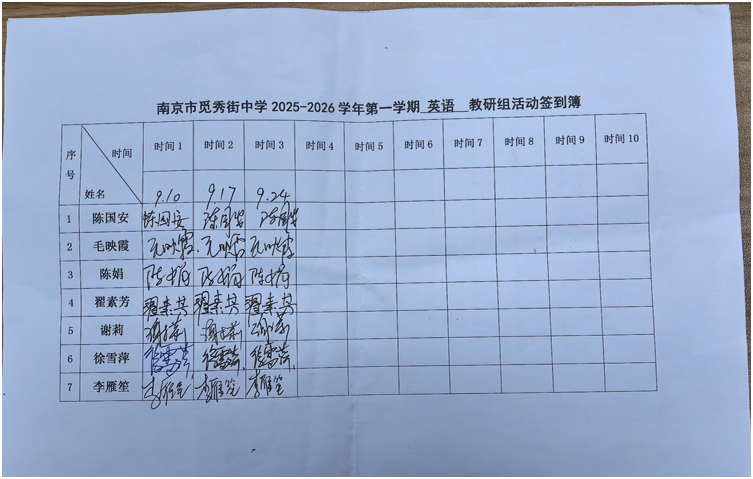 南京市觅秀街中学 2025-2026 学年第一学期 英语 教研组活动签到簿
序号 时间 姓名 时间 1 时间 2 时间 3 时间 4 时间 5 时间 6 时间 7 时间 8 时间 9 时间 10
9.10 9.17 9.24
1 陈国安 陈国安 陈国安 陈国安
2 毛映霞 毛映霞 毛映霞 毛映霞
3 陈娟 陈娟 陈娟 陈娟
4 翟素芳 翟素芳 翟素芳 翟素芳
5 谢莉 谢莉 谢莉 谢莉
6 徐雪萍 徐雪萍 徐雪萍 徐雪萍
7 李雁笙 李雁笙 李雁笙 李雁笙